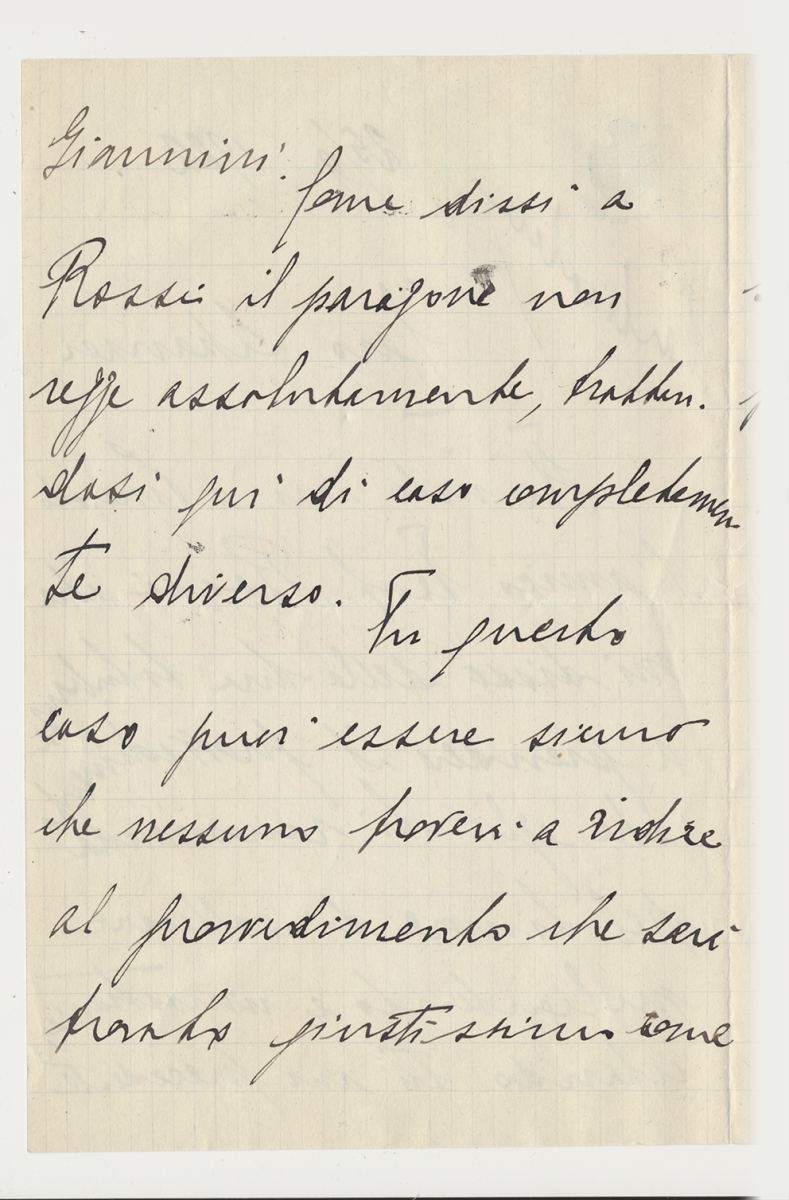 Giannini.
Come dissi a
Rossi il paragone non
regge assolutamente, trattan.
dosi qui di caso completamen
te diverso.
In questo
caso puoi essere sicuro
che nessuno troverà a ridire
al provvedimento che sarà
trovato giustissimo come